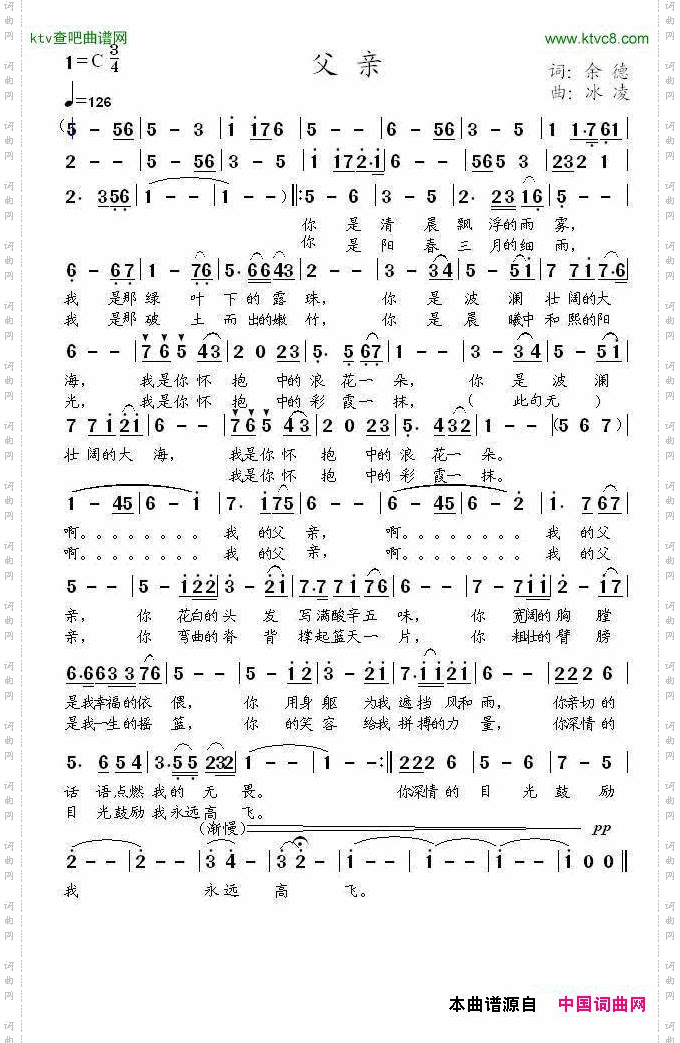 ktv查吧曲谱网 www.ktvc8.com
1=C 3/4
父亲
词: 余德
♩=126
曲: 冰凌
(5 - 56|5 - 3|1 176|5 - -|6 - -|3 - 56|1 1·761|
2 - -|5 - 56|3 - 5|1 172·1|6 - -|565 3|232 1|
2· 356|1 - -|1 - -)‖:5 - 6|3 - 5|2· 23 16|5 - -|
你是清晨飘浮的雨雾,
你是阳春三月的细雨,
6 - 67|1 - 76|5· 6643|2 - -|3 - 34|5 - 51|7 717·6|
我是那绿叶下的露珠, 你是波澜壮阔的大
我是那破土而出的嫩竹, 你是晨曦中和熙的阳
6 - -|765 43|2 0 23|5· 567|1 - -|3 - 34|5 - 51|
海, 我是你怀抱中的浪花一朵, 你是波澜
光, 我是你怀抱中的彩霞一抹, (此句无)
7 7121|6 - -|765 43|2 0 23|5· 432|1 - -|(5 6 7)|
壮阔的大海, 我是你怀抱中的浪花一朵。
我是你怀抱中的彩霞一抹。
1 - 45|6 - 1|7· 175|6 - -|6 - 45|6 - 2|1· 767|
啊。。。。。。。我的父亲, 啊。。。。。。。我的父
啊。。。。。。。我的父亲, 啊。。。。。。。我的父
5 - -|5 - 122|3 - 21|7·7 7176|6 - -|7 - 711|2 - 17|
亲, 你花白的头发写满酸辛五味, 你宽阔的胸膛
亲, 你弯曲的脊背撑起蓝天一片, 你粗壮的臂膀
6·663 376|5 - -|5 - 12|3 - 23|7·1121|6 - -|222 6|
是我幸福的依偎, 你用身躯为我遮挡风和雨, 你亲切的
是我一生的摇篮, 你的笑容给我拼搏的力量, 你深情的
5· 654|3·55 232|1 - -|1 - -:‖222 6|5 - 6|7 - 5|
话语点燃我的无畏。 你深情的目光鼓励
目光鼓励我永远高飞。
(渐慢) pp
2 - -|2 - -|3 4 -|3 2 -|1 - -|1 - -|1 0 0‖
我 永远高飞。
本曲谱源自 中国词曲网
词曲网